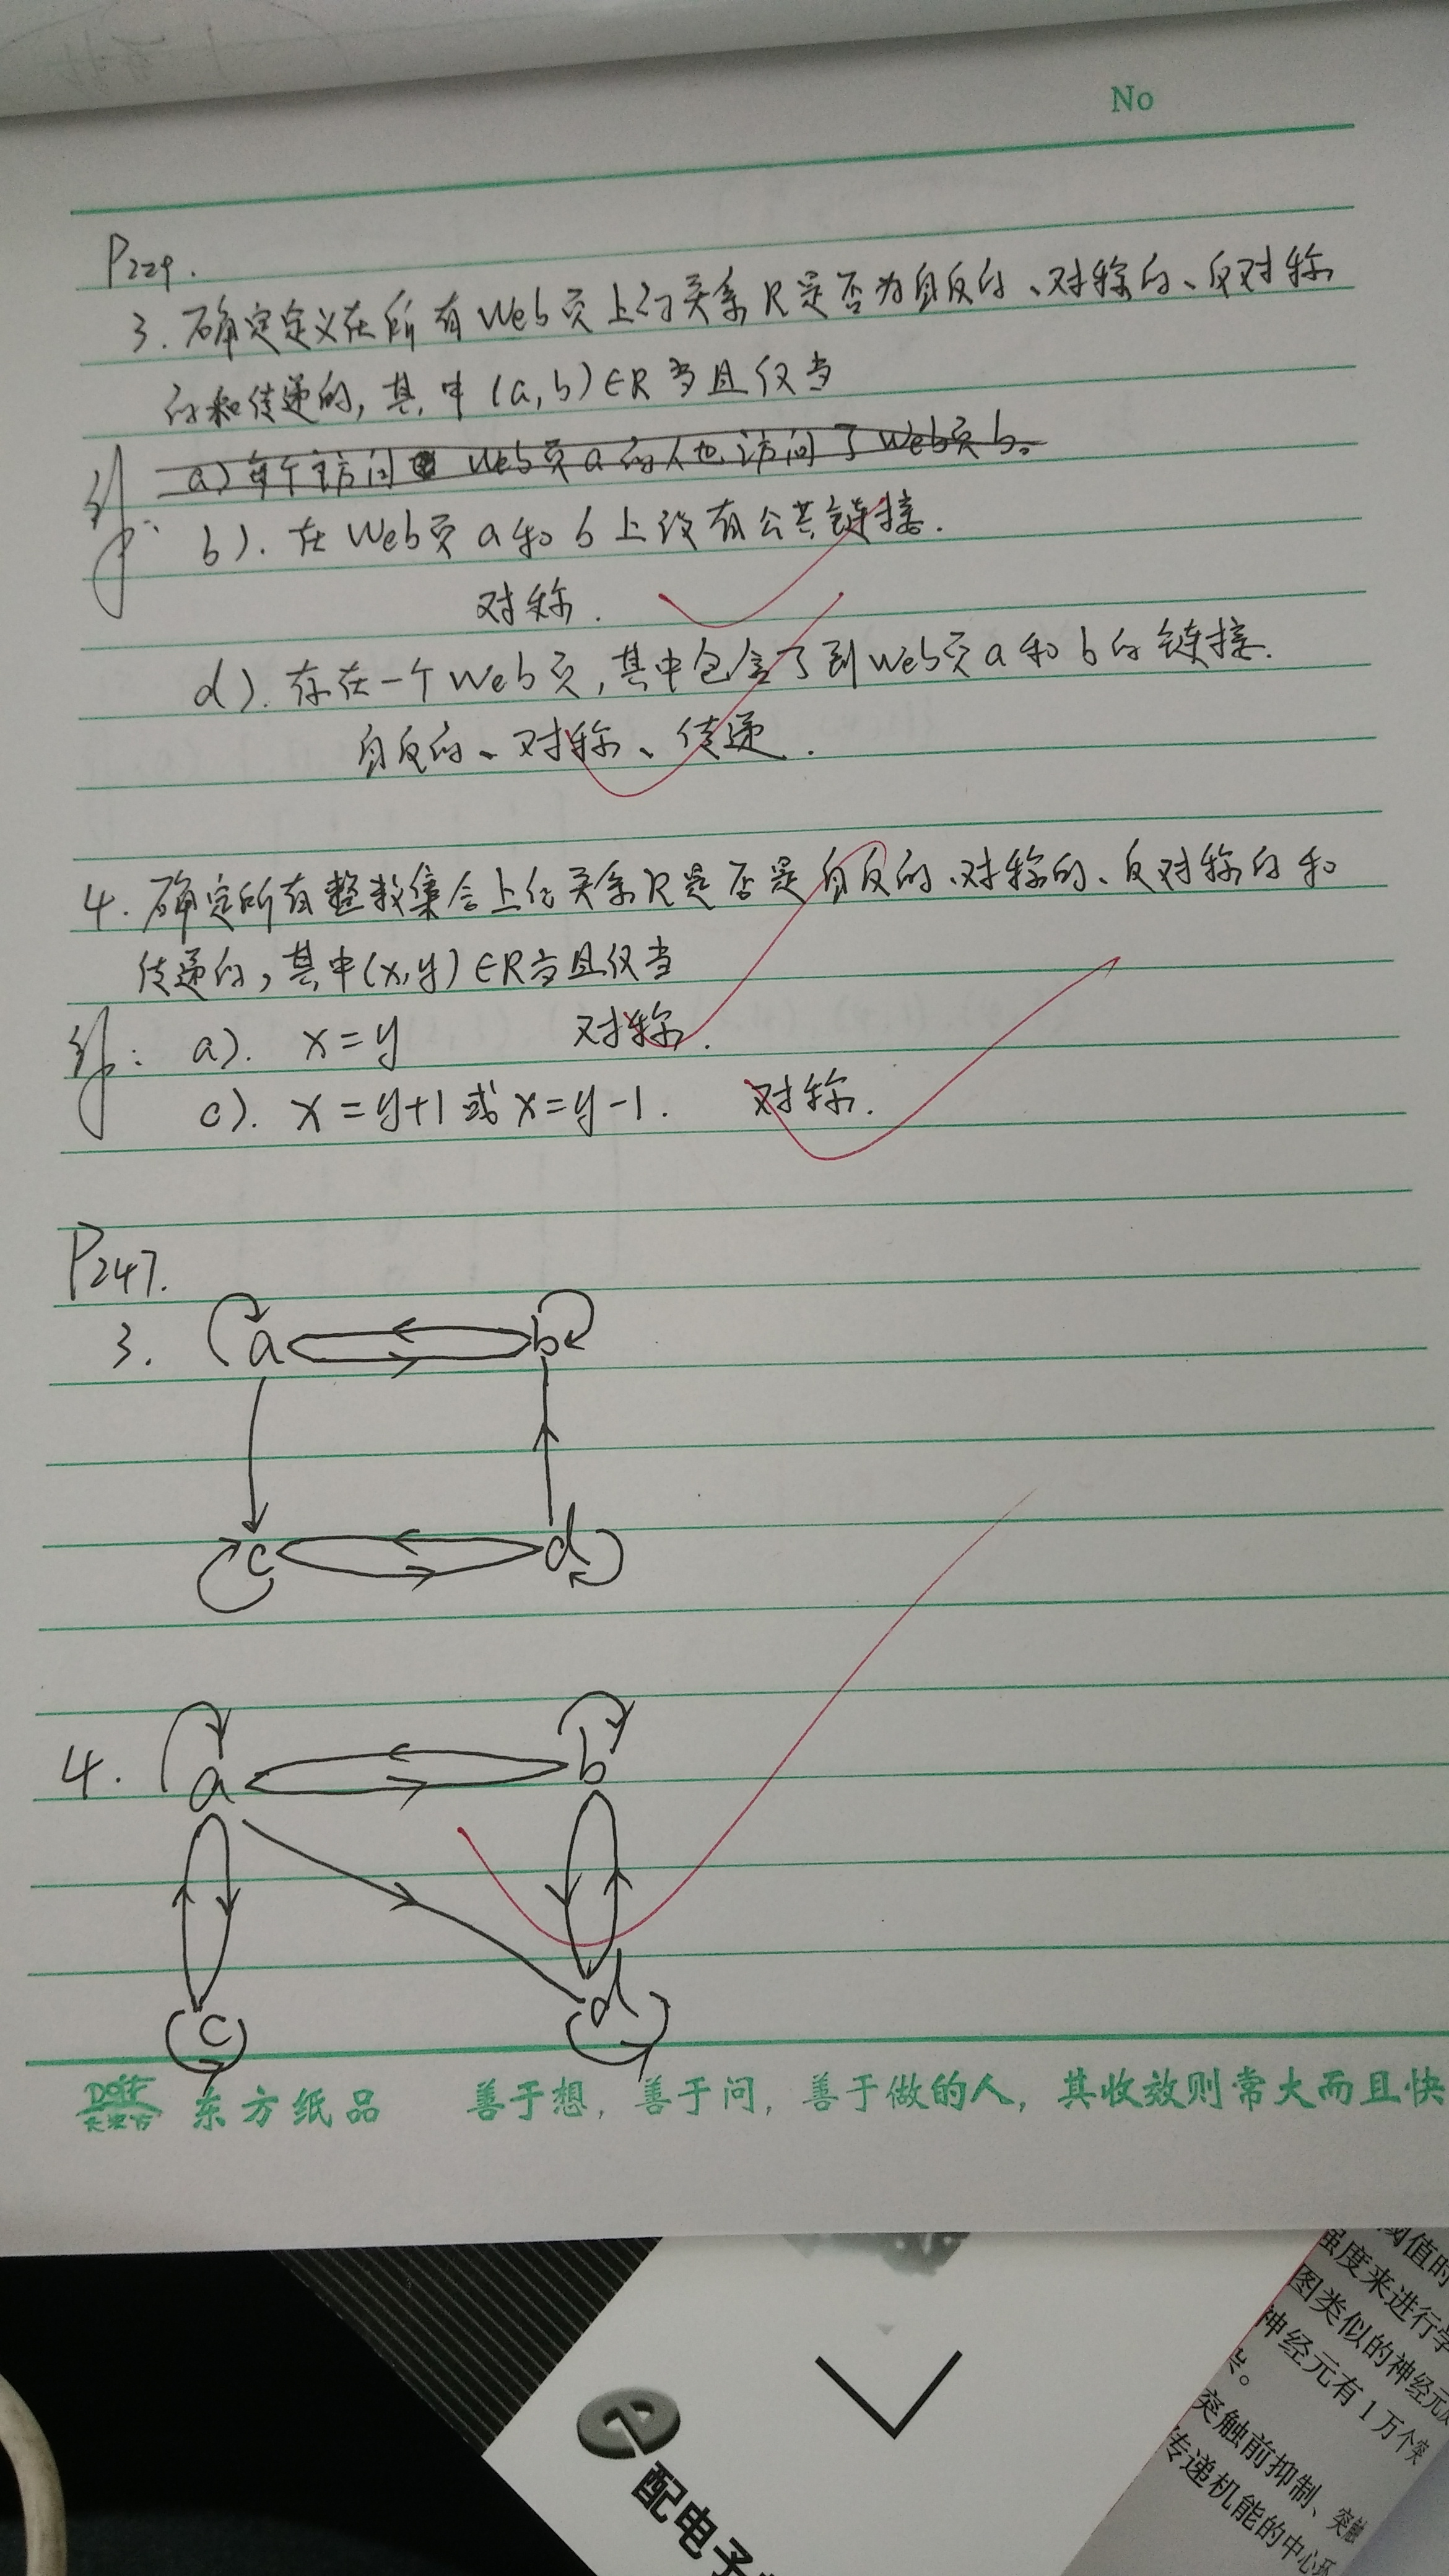 No
P229.
3. 确定定义在所有Web页上的关系R是否为自反的、对称的、反对称
的和传递的,其中(a,b)∈R当且仅当
a)每个访问 Web页a的人也访问了Web页b。
解:
b). 在Web页a和b上没有公共链接.
对称.
d). 存在一个Web页,其中包含了到Web页a和b的链接.
自反的、对称、传递.
4. 确定所有整数集合上的关系R是否是自反的、对称的、反对称的和
传递的,其中(x,y)∈R当且仅当
解: a). x=y 对称.
c). x=y+1或x=y-1. 对称.
P247.
3. a b
c d
4. a b
c d
东方纸品 善于想,善于问,善于做的人,其收效则常大而且快
阈值时
强度来进行学
图类似的神经元
神经元有1万个突
突触前抑制、突触
传递机能的中心环
配电子